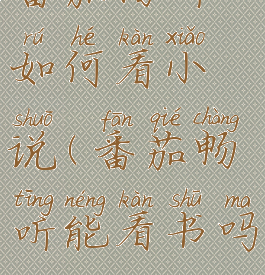 rú hé kàn xiǎo
如何看小
shuō fān qié chàng
说(番茄畅
tīng néng kàn shū ma
听能看书吗